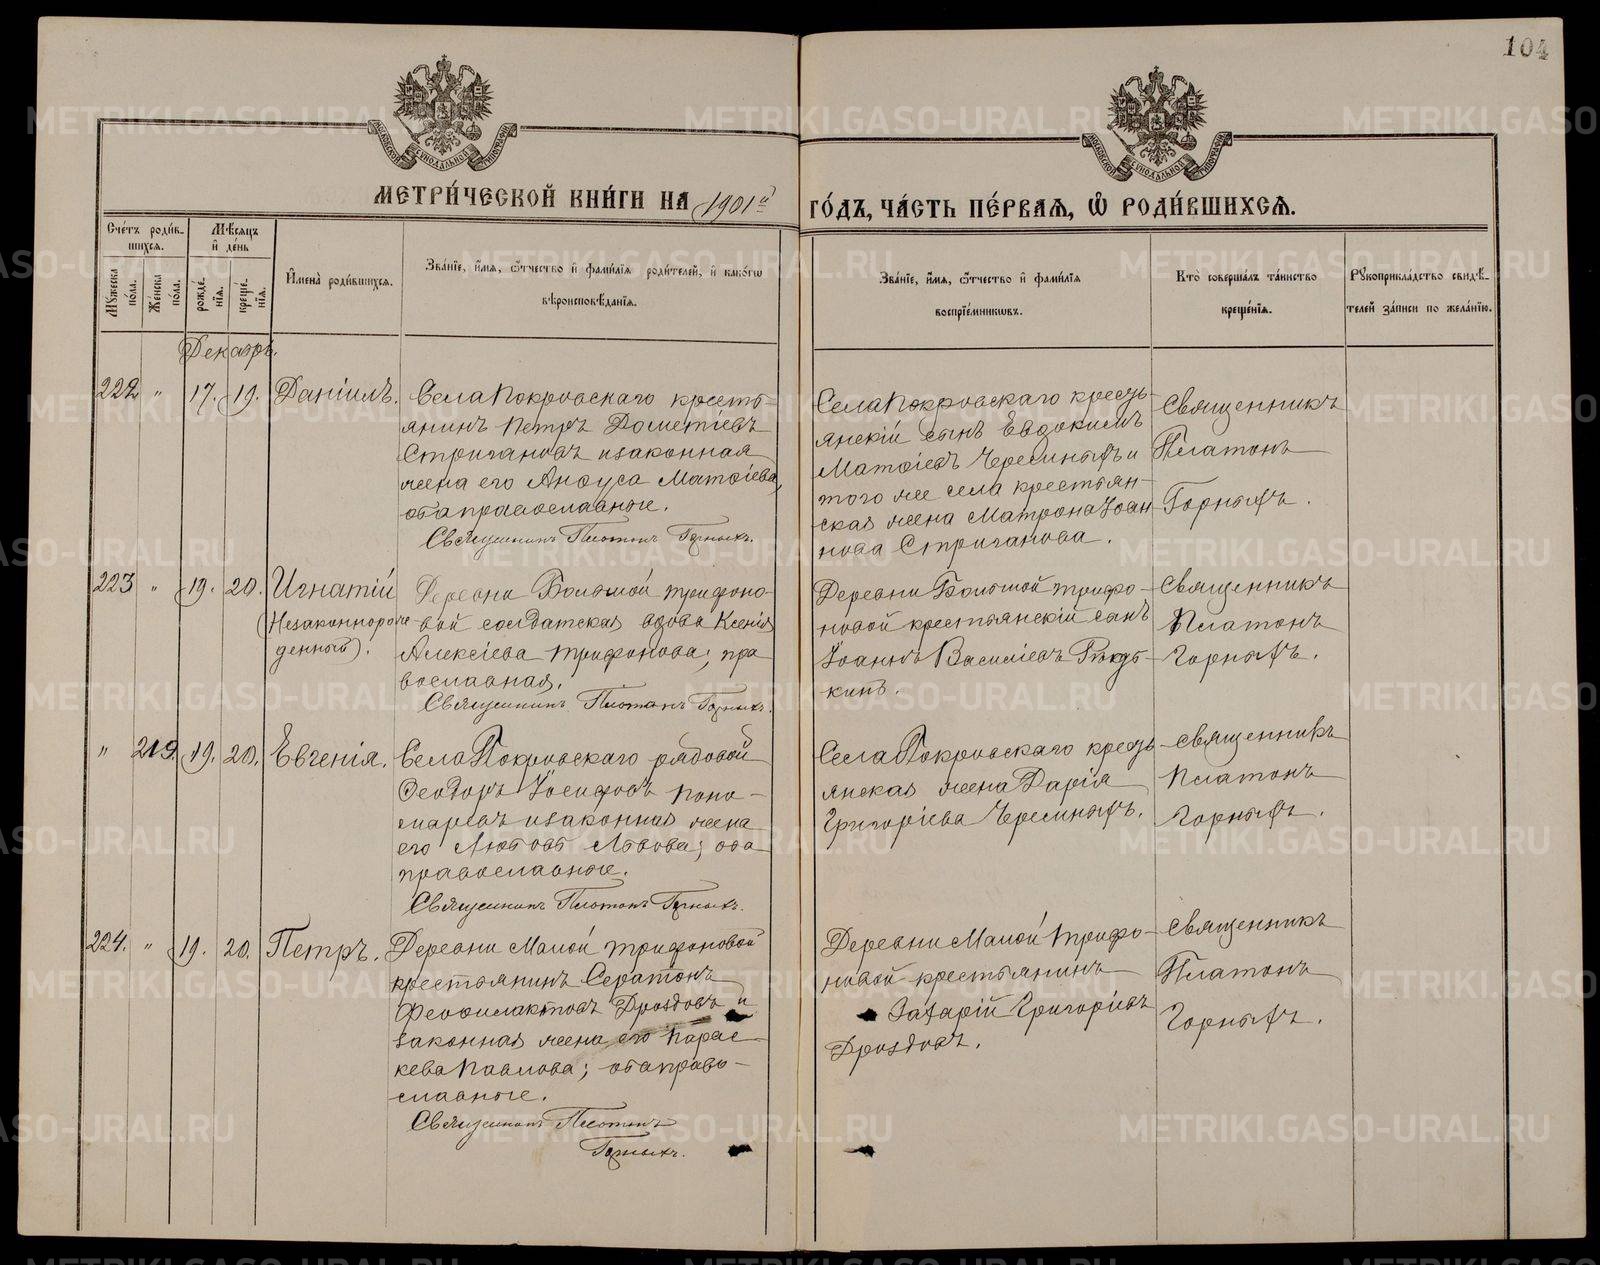 104
МОСКОВСКОЙ СѴНОДАЛЬНОЙ ТИПОГРАФІИ
МОСКОВСКОЙ СѴНОДАЛЬНОЙ ТИПОГРАФІИ
МЕТРИ́ЧЕСКОЙ КНИ́ГИ НА 1901й ГО́ДЪ, ЧА́СТЬ ПЕ́РВАЯ, Ѡ РОДИ́ВШИХСЯ.
Сче́тъ роди́в-
шихся.
Мѣ́сяцъ
и҆ де́нь
Мꙋ́жеска
по́ла.
Же́нска
по́ла.
рожде́-
нїя.
креще́-
нїя.
И҆мена̀ роди́вшихся.
Зва́нїе, и҆́мя, ѻ҆́тчество и҆ фами́лїя роди́телей, и҆ како́гѡ
вѣроисповѣ́данїя.
Зва́нїе, и҆́мя, ѻ҆́тчество и҆ фами́лїя
воспрїе́мникѡвъ.
Кто̀ соверша́лъ та́инство
креще́нїя.
Рꙋкоприкла́дство свидѣ́-
телей за́писи по жела́нїю.
Декабрь.
222 " 17. 19. Даніилъ.
Села Покровскаго кресть-
янинъ Петръ Дометіевъ
Стригановъ и законная
жена его Анфуса Матѳіева,
оба православные.
Священникъ Платонъ Горныхъ.
Села Покровскаго кресть-
янскій сынъ Евдокимъ
Матѳіевъ Чересныхъ и
того же села крестьян-
ская жена Матрона Іоан
нова Стриганова.
Священникъ
Платонъ
Горныхъ.
223 " 19. 20. Игнатій
(Незаконнорож
денный).
Деревни Большой Трифоно-
вой солдатская вдова Ксенія
Алексіева Трифонова; пра
вославная.
Священникъ Платонъ Горныхъ.
Деревни Большой Трифо-
новой крестьянскій сынъ
Іоаннъ Василіевъ Рѣдь-
кинъ.
Священникъ
Платонъ
Горныхъ.
" 219. 19. 20. Евгенія.
Села Покровскаго рядовой
Ѳеодоръ Іосифовъ Поно-
маревъ и законная жена
его Любовь Львова; оба
православные.
Священникъ Платонъ Горныхъ.
Села Покровскаго кресть
янская жена Дарія
Григоріева Чересныхъ.
Священникъ
Платонъ
Горныхъ.
224. " 19. 20. Петръ.
Деревни Малой Трифоновой
крестьянинъ Серапіонъ
Ѳеофилактовъ Дроздовъ и
законная жена его Парас-
кева Павлова; оба право-
славные.
Священникъ Платонъ
Горныхъ.
Деревни Малой Трифо-
новой крестьянинъ
Захарій Григоріевъ
Дроздовъ.
Священникъ
Платонъ
Горныхъ.
METRIKI.GASO-URAL.RU